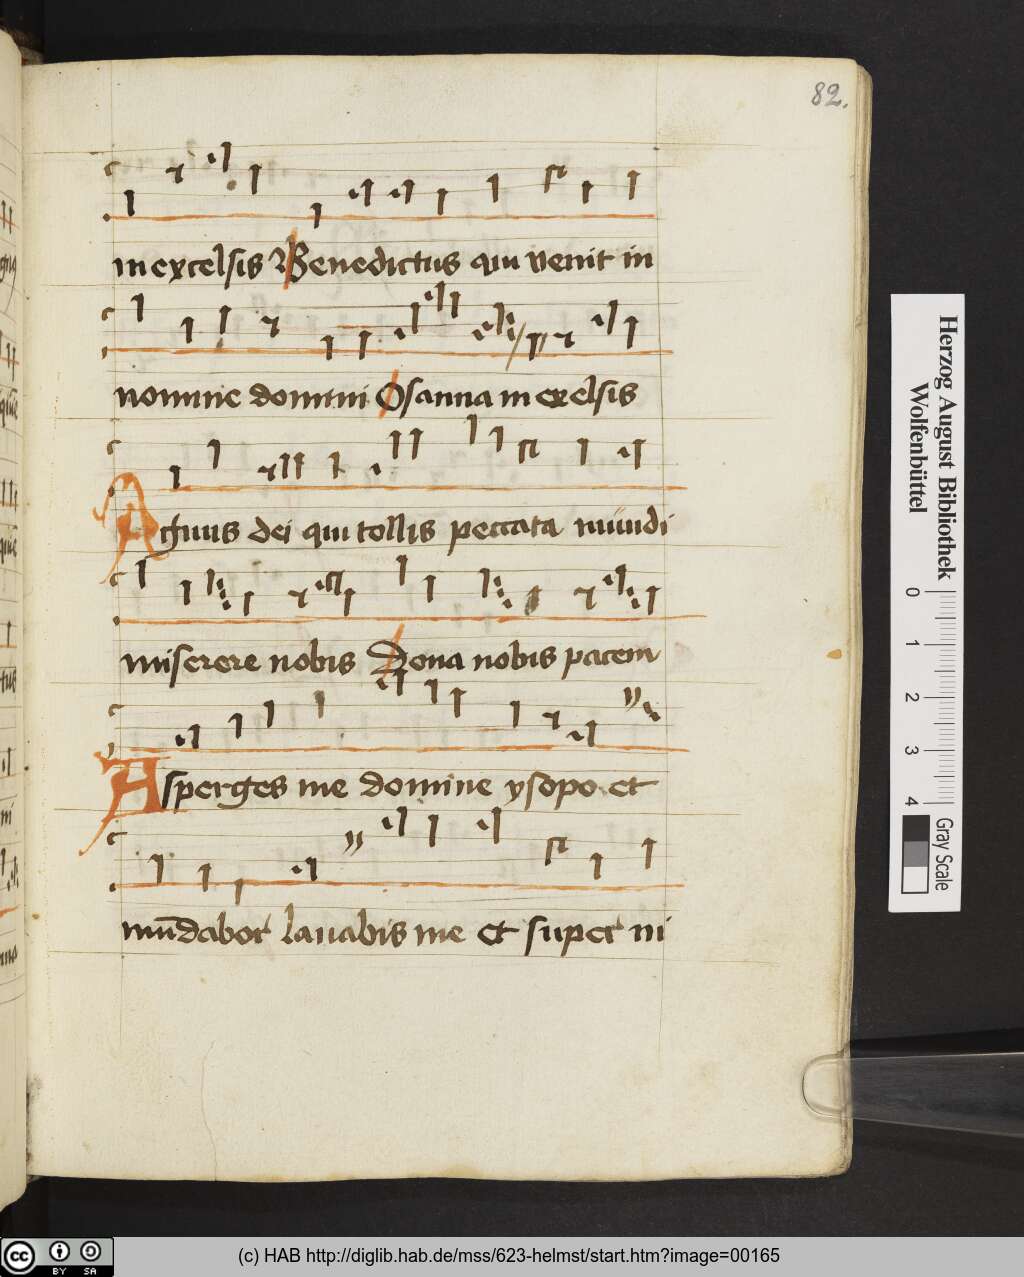 82.
in excelsis Benedictus qui venit in
nomine domini Osanna in exelsis
Agnus dei qui tollis peccata mundi
miserere nobis Dona nobis pacem
Asperges me domine ysopo et
mūdabor lauabis me et super ni
Herzog August Bibliothek
Wolfenbüttel
0 1 2 3 4
Gray Scale
cc BY SA
(c) HAB http://diglib.hab.de/mss/623-helmst/start.htm?image=00165